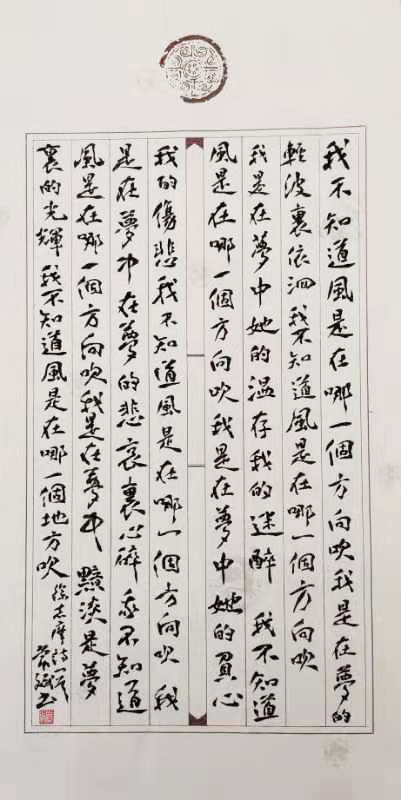 我不知道風是在哪一個方向吹我是在夢的
輕波裏依洄我不知道風是在哪一個方向吹
我是在夢中她的溫存我的迷醉 我不知道
風是在哪一個方向吹我是在夢中她的負心
我的傷悲我不知道風是在哪一個方向吹 我
是在夢中在夢的悲哀裏心碎我不知道
風是在哪一個方向吹我是在夢中 黯淡是夢
裏的光輝 我不知道風是在哪一個地方吹 徐志摩詩一首
书